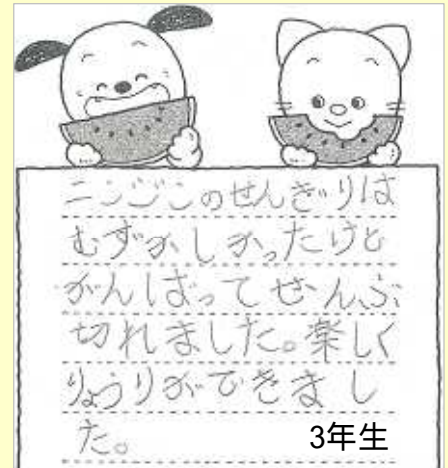 ニンジンのせんぎりは
むずかしかったけど
がんばってぜんぶ
切れました。楽しく
りょうりができまし
た。
3年生